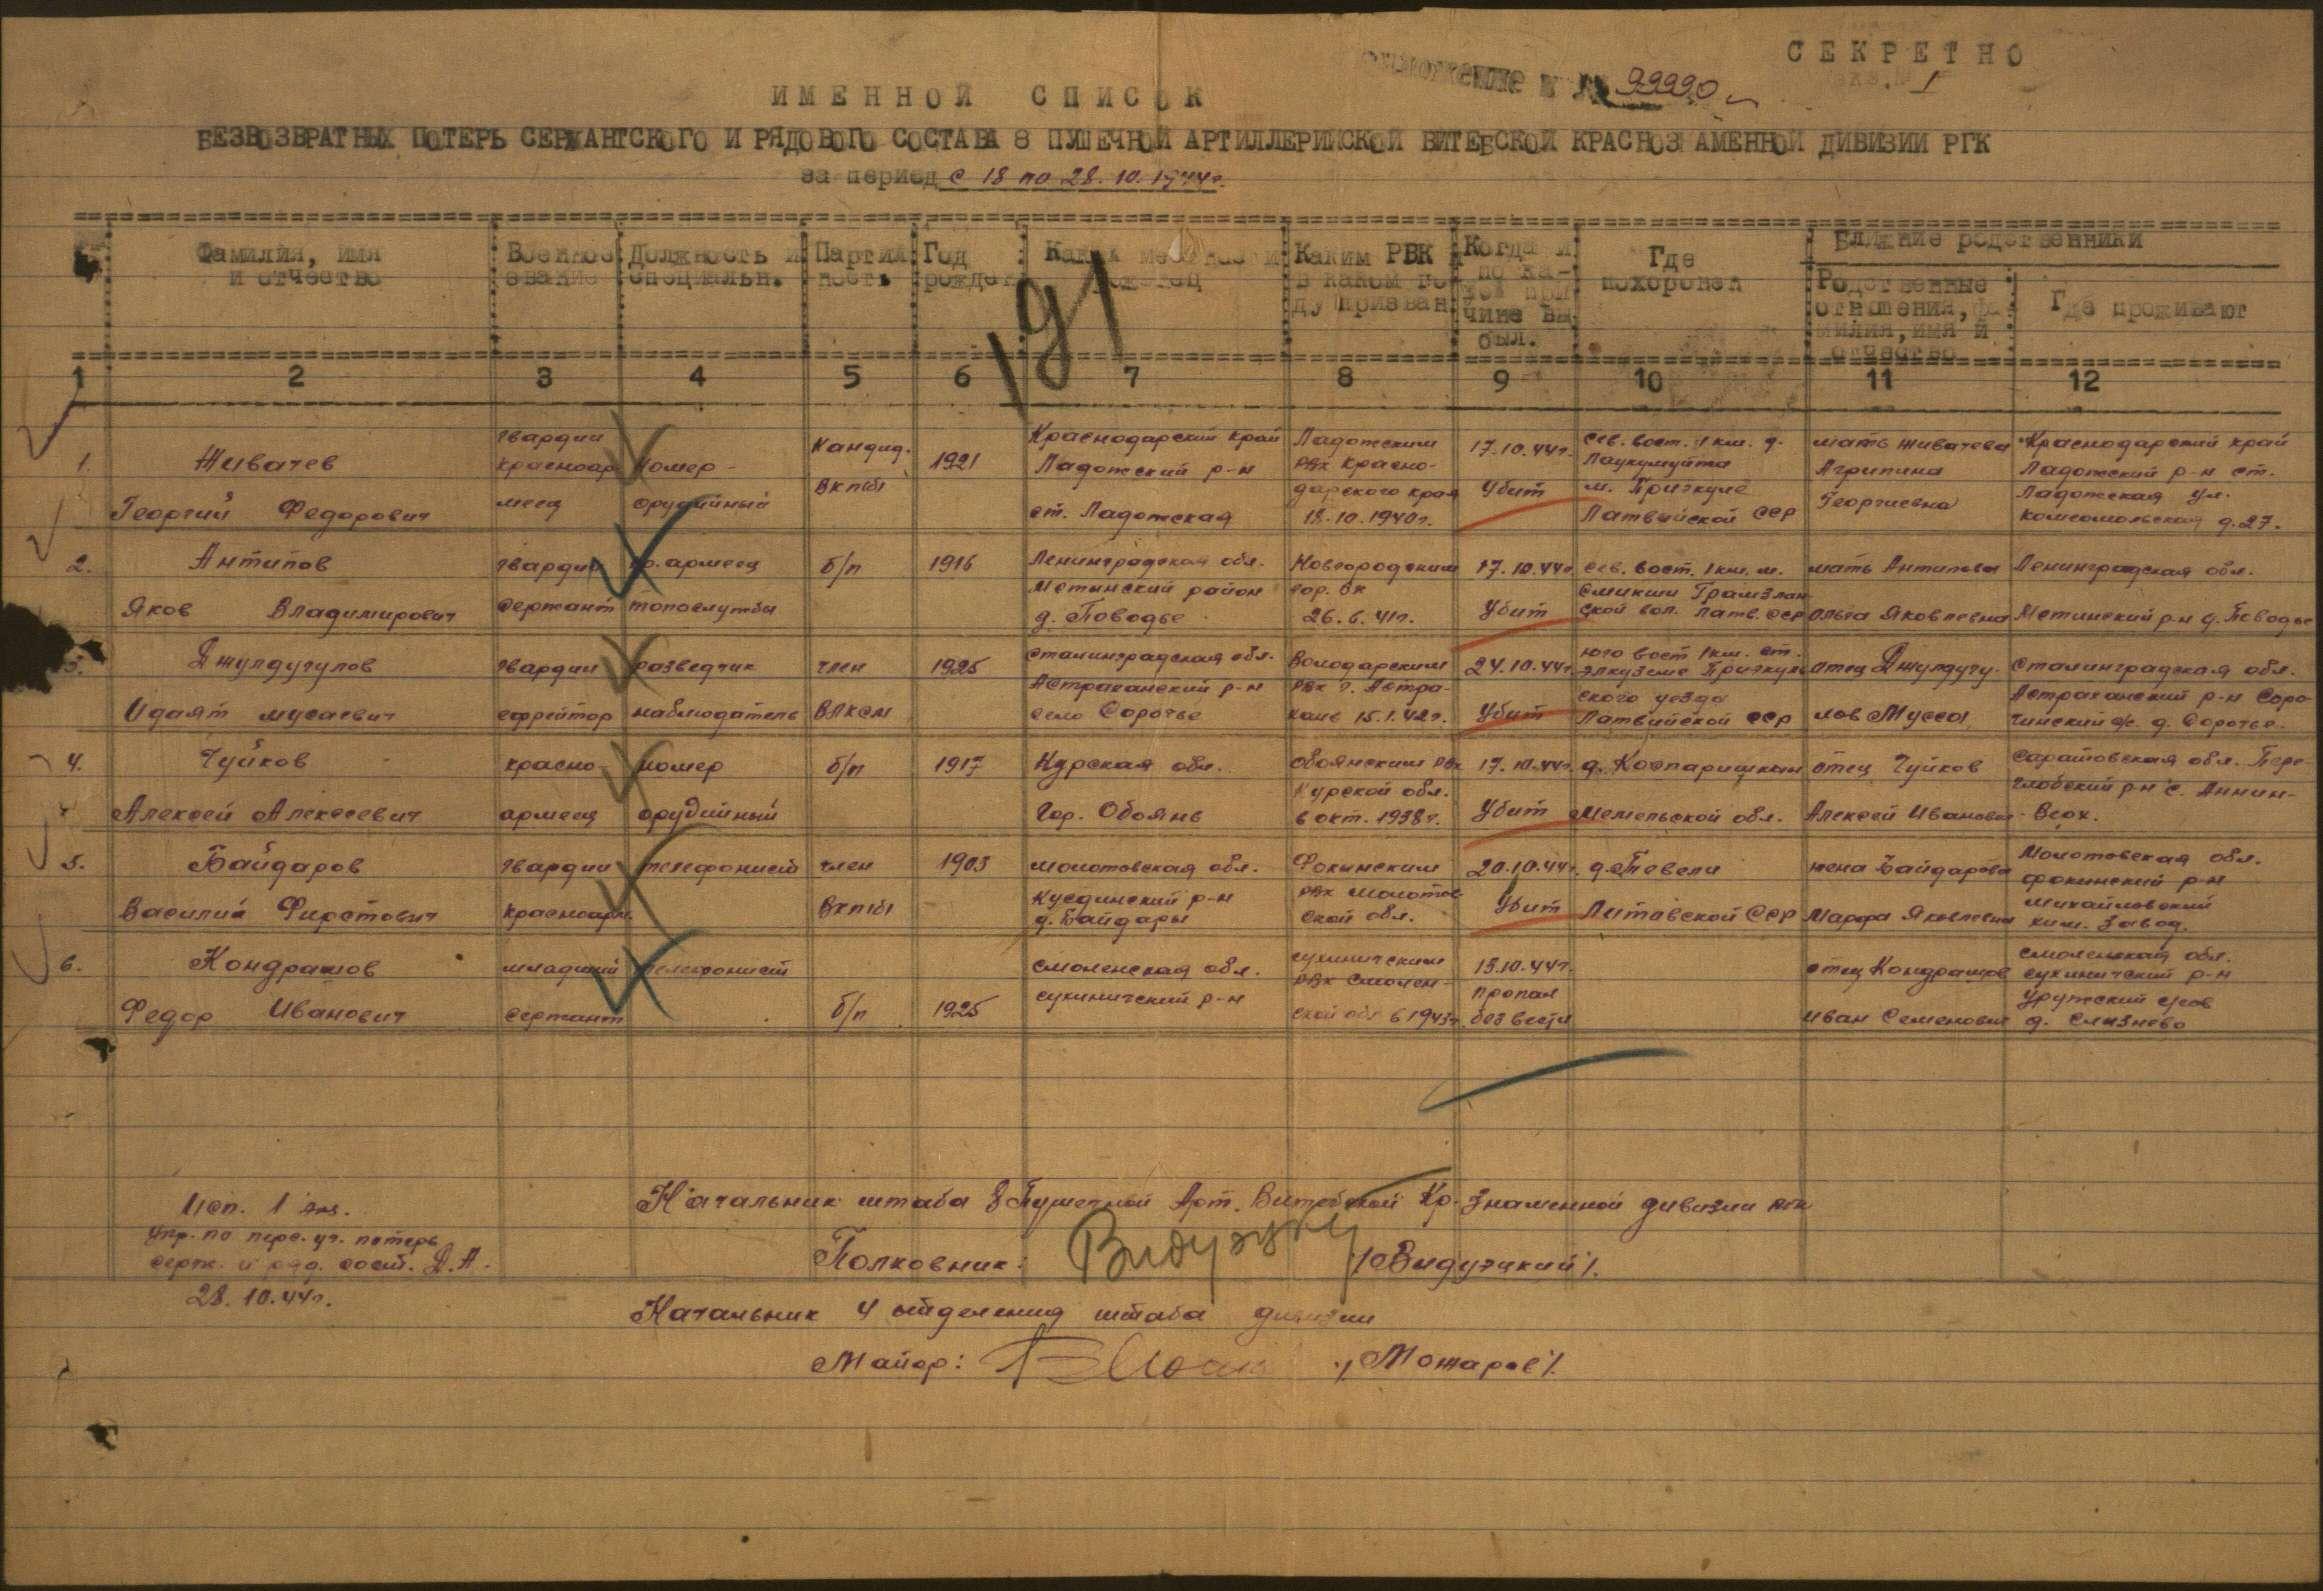 СЕКРЕТНО
экз. № 1
№ 99990
ИМЕННОЙ СПИСОК
БЕЗВОЗВРАТНЫХ ПОТЕРЬ СЕРЖАНТСКОГО И РЯДОВОГО СОСТАВА 8 ПУШЕЧНОЙ АРТИЛЛЕРИЙСКОЙ ВИТЕБСКОЙ КРАСНОЗНАМЕННОЙ ДИВИЗИИ РГК
за период с 18 по 28.10.1944г.
191
Фамилия, имя
и отчество
Военное
звание
Должность и
специальн.
Партий
ность
Год
рожден
Каким РВК
в каком го
ду призван
Когда и
по ка-
кой при
чине вы
был.
Где
похоронен
Ближние родственники
Родственные
отношения, фа
милия, имя и
отчество
Где проживают
1 2 3 4 5 6 7 8 9 10 11 12
1.
Живачев
Георгий Федорович
гвардии
красноар
меец
номер-
орудийный
Кандид.
ВКП(б)
1921
Краснодарский край
Ладожский р-н
ст. Ладожская
Ладожским
РВК Красно-
дарского края
18.10.1940г.
17.10.44г.
Убит
сев. вост. 1 км. д.
Латвийской ССР
мать Живачева
Агрипина
Георгиевна
Краснодарский край
Ладожский р-н ст.
Ладожская ул.
комсомольская д.27.
2.
Антипов
Яков Владимирович
гвардии
сержант
кр. армеец
топослужбы
б/п
1916
Ленинградская обл.
Мстинский район
д. Поводье
Новгородским
гор. вк
26.6.41г.
17.10.44г
Убит
сев. вост. 1 км. м.
ской вол. Латв. ССР
мать Антипова
Ольга Яковлевна
Ленинградская обл.
Мстинский р-н д. Поводье
3.
Джулдугулов
Идаят мусаевич
гвардии
ефрейтор
разведчик
наблюдатель
член
ВЛКСМ
1925
Сталинградская обл.
Астраханский р-н
село Сорочье
Володарским
РВК г. Астра-
хань 15.1.42г.
24.10.44г.
Убит
юго вост 1 км. ст.
ского уезда
Латвийской ССР
отец Джулдугу-
лов Мусса
Сталинградская обл.
Астраханский р-н Соро-
чинский с/с. д. Сорочье.
4.
Чуйков
Алексей Алексеевич
красно-
армеец
номер
орудийный
б/п
1917
Курская обл.
Гор. Обоянь
Обоянским РВК
Курской обл.
в окт. 1938г.
17.10.44г.
Убит
Мемельской обл.
отец Чуйков
Алексей Иванович
Саратовская обл.
5.
Байдаров
Василий Фирстович
гвардии
красноарм.
телефонист
член
ВКП(б)
1903
Молотовская обл.
Куединский р-н
д. Байдары
Фокинским
РВК Молотов
ской обл.
20.10.44г.
Убит
д. Тевели
Литовской ССР
жена Байдарова
Марфа Яковлевна
Молотовская обл.
фокинский р-н
Михайловский
хим. завод.
6.
Кондрашов
Федор Иванович
младший
сержант
телефонист
б/п
1925
Смоленская обл.
сухиничский р-н
сухиничским
РВК Смолен-
ской обл в 1943г
15.10.44г.
пропал
без вести
отец Кондрашов
Иван Семенович
Смоленская обл.
сухиничский р-н
д. Слизнево
Исп. 1 экз.
упр. по перс. уч. потерь
серж. и ряд. сост. Д.А.
28.10.44г.
Начальник штаба 8 Пушечной Арт. Витебской Кр. Знаменной дивизии РГК
Полковник: /Видузский/.
Начальник 4 отделения штаба дивизии
Майор: /Можаров/.